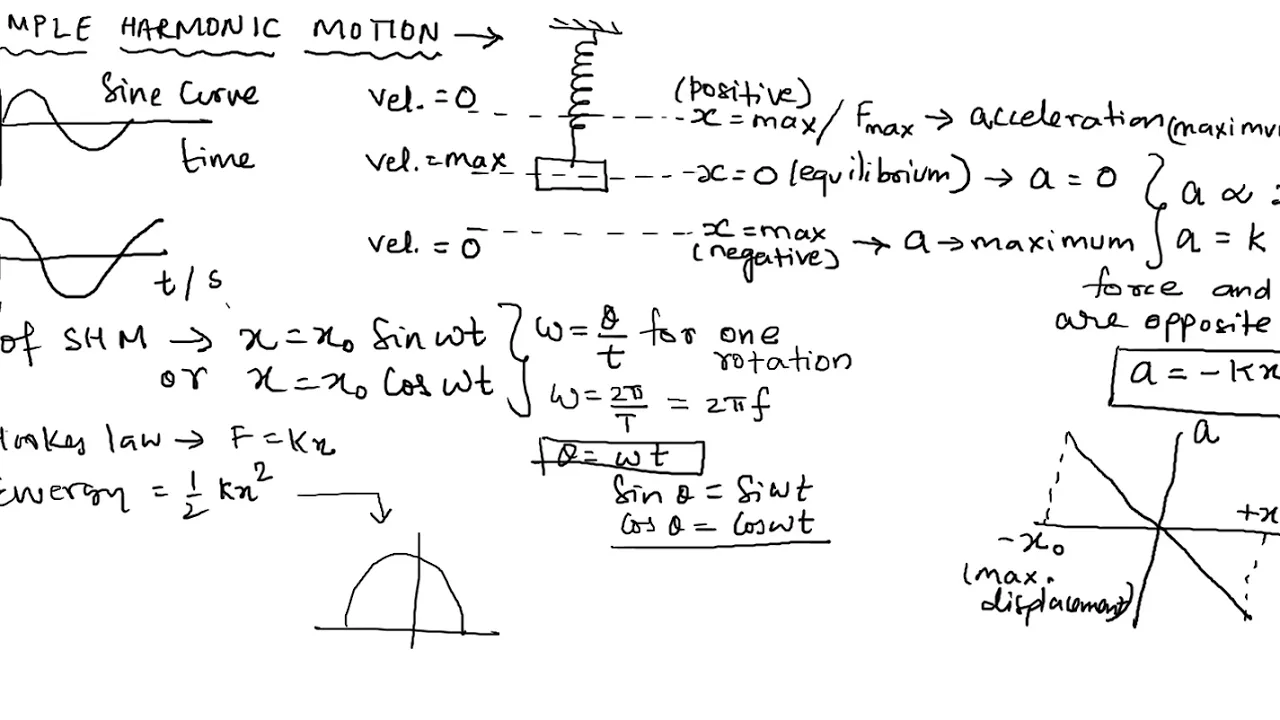 MPLE HARMONIC MOTION →
Sine Curve
time
t/s
vel. = 0
vel. = max
vel. = 0
(positive)
x = max / Fmax → acceleration (maximum
x = 0 (equilibrium) → a = 0
x = max
(negative) → a → maximum
a ∝
a = k
force and
are opposite
a = -kx
of SHM → x = x₀ sin ωt
or x = x₀ cos ωt
ω = θ/t for one
rotation
ω = 2π/T = 2πf
θ = ωt
sin θ = siωt
cos θ = cosωt
Hookes law → F = Kx
Energy = 1/2 Kx²
a
+x
-x₀
(max.
displacement)